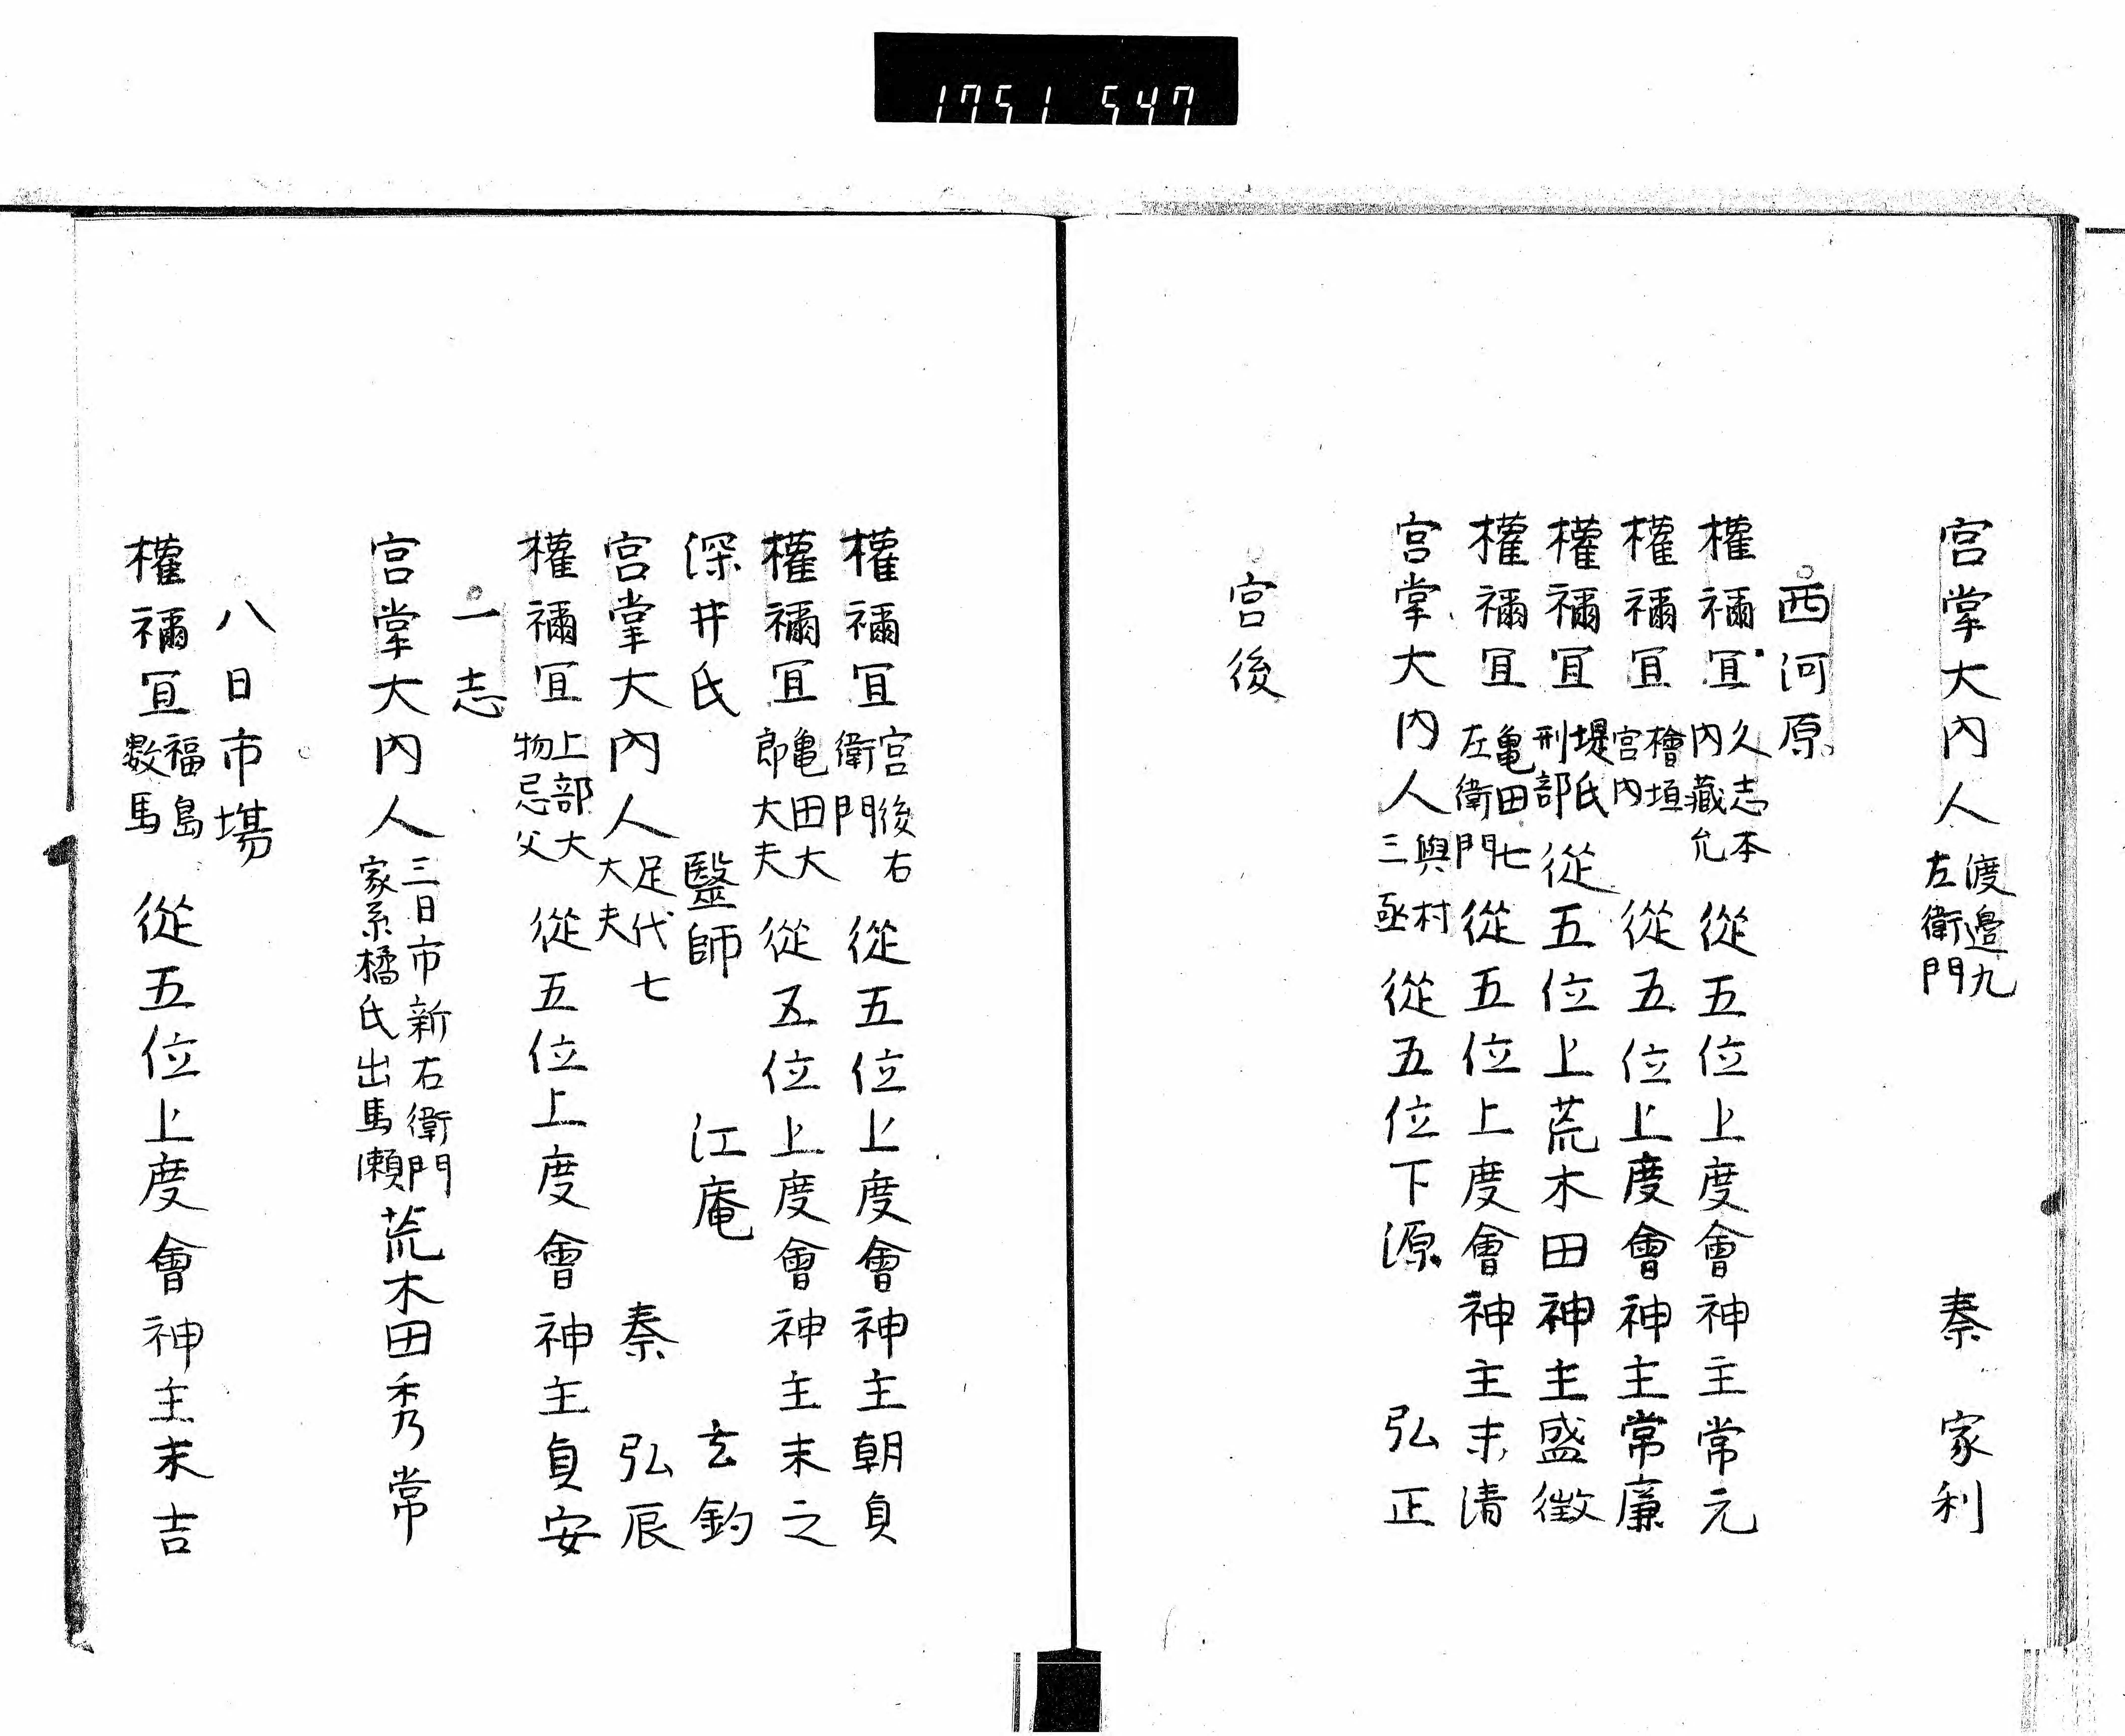 1751 547
宮掌大内人 渡邉九左衛門 秦 家利
西河原
權禰冝 久志本内藏允 從五位上度會神主常元
權禰冝 檜垣宮内 從五位上度會神主常廉
權禰冝 堤氏刑部 從五位上荒木田神主盛徴
權禰冝 亀田七左衛門 從五位上度會神主末清
宮掌大内人 與村三亟 從五位下源 弘正
宮後
權禰冝 宮後右衛門 從五位上度會神主朝貞
權禰冝 亀田大郎大夫 從五位上度會神主末之
深井氏 毉師 江庵 玄釣
宮掌大内人 足代七大夫 秦 弘辰
權禰冝 上部大物忌父 從五位上度會神主貞安
一志
宮掌大内人 三日市新右衛門家系橘氏出馬瀬 荒木田秀常
八日市場
權禰冝 福島数馬 從五位上度會神主末吉